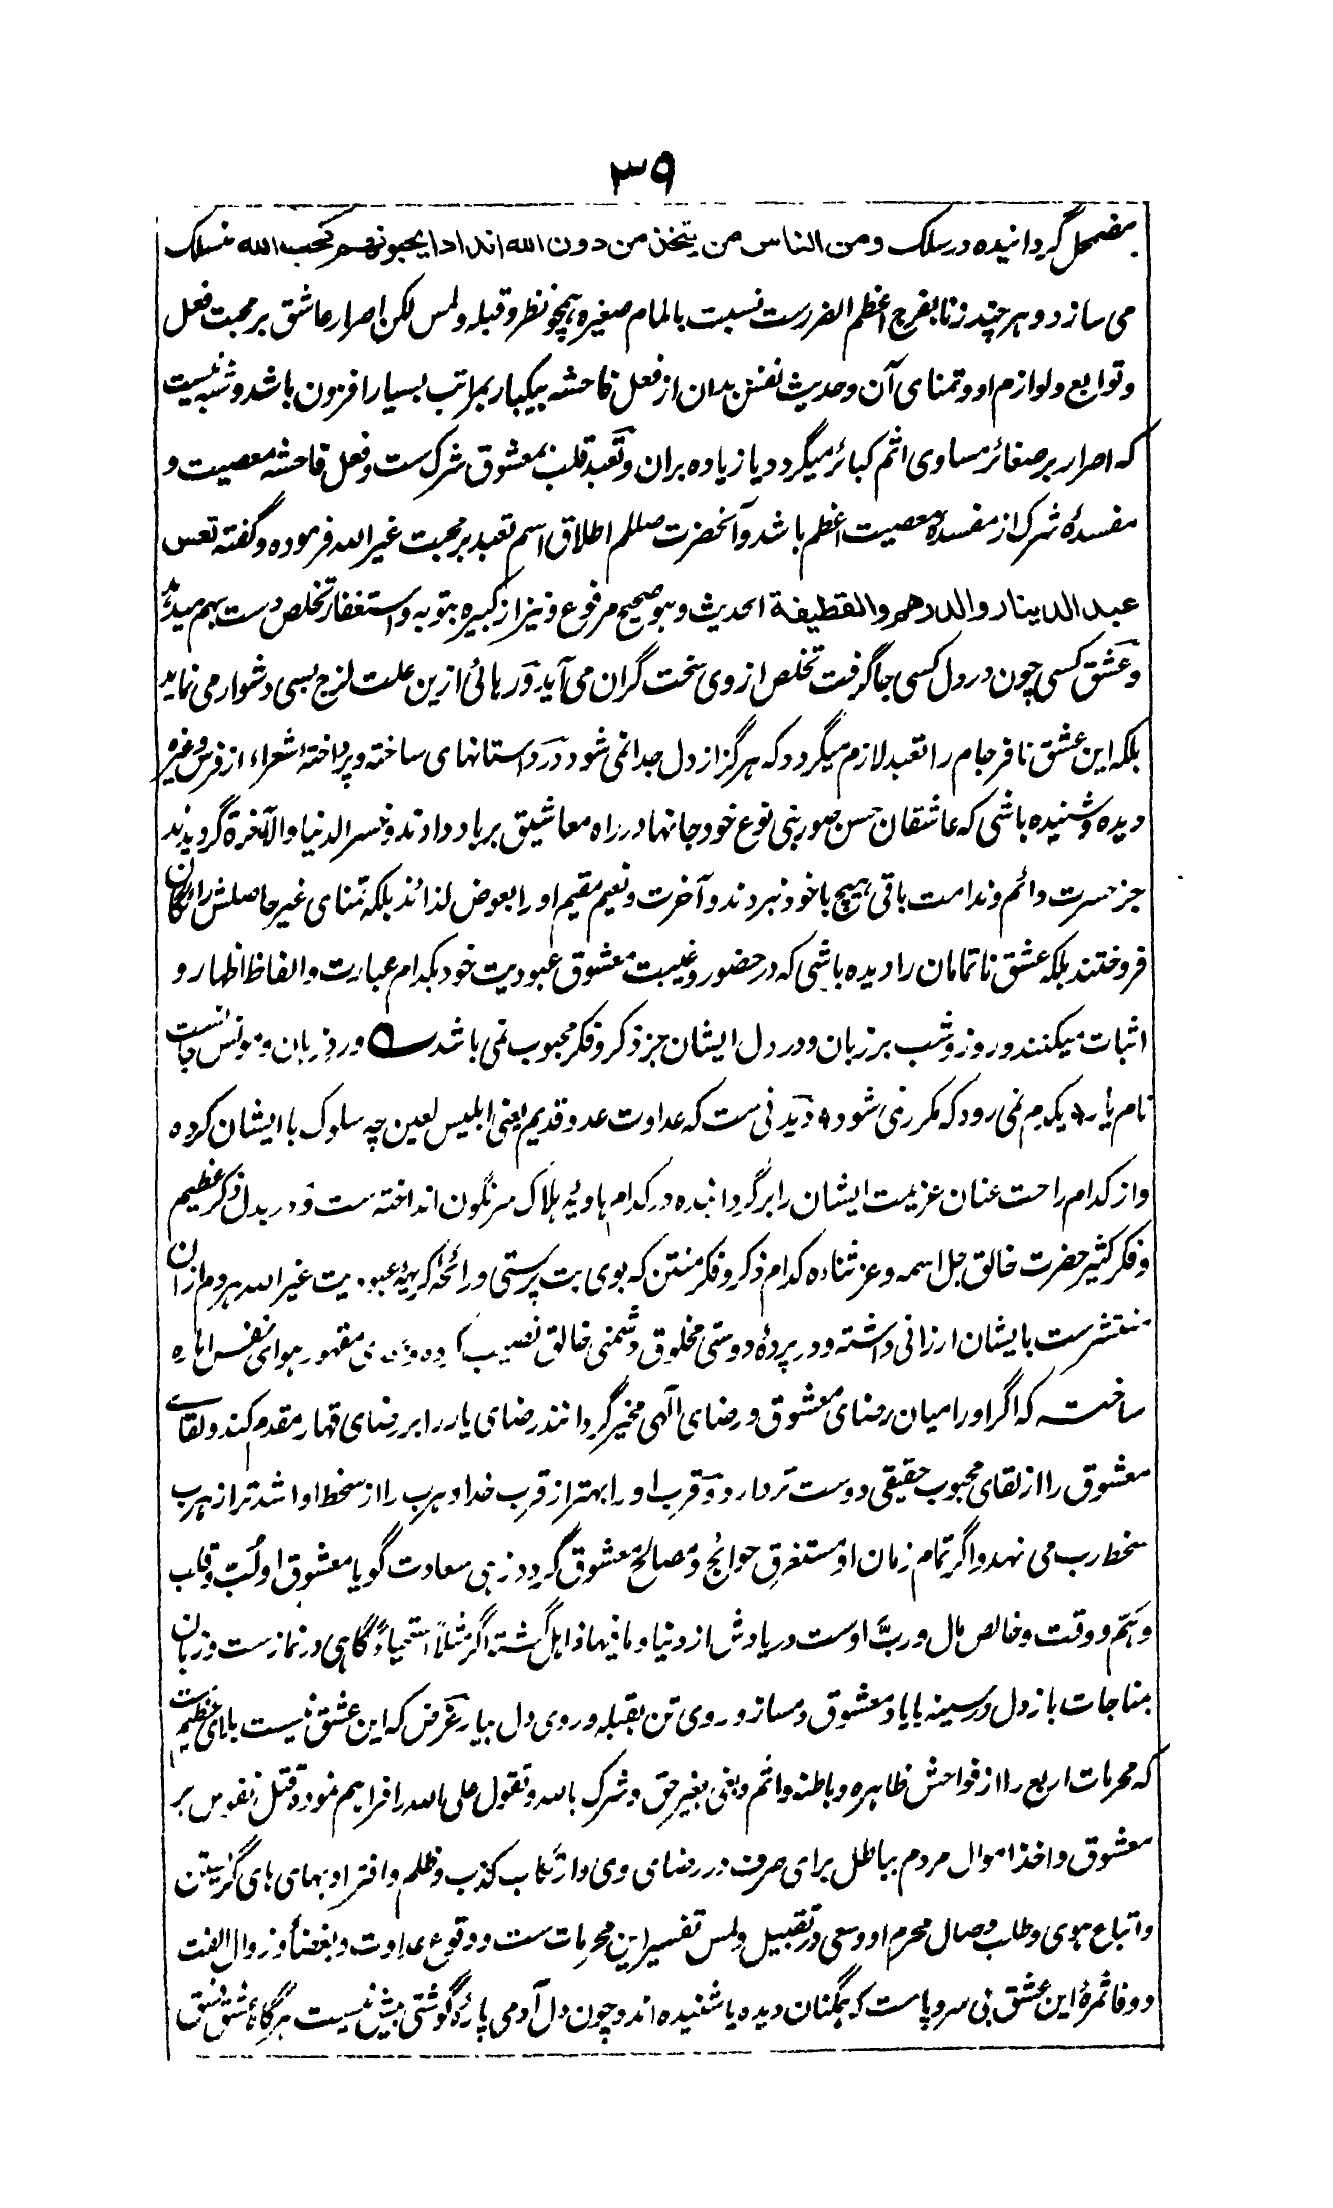 ۳۹
مضمحل گردانیده در سلک ومن الناس من يتخذ من دون الله اندادا يحبونهم كحب الله منسلک
می سازد و هر چند زنا بفرج اعظم الضررست نسبت بالمام صغیره همچو نظر و قبله و لمس لکن اصرار عاشق بر محبت فعل
و توابع و لوازم او و تمنای آن و حدیث نفس بدان از فعل فاحشه بیکبار بمراتب بسیار افزون باشد و شبه نیست
که اصرار بر صغائر مساوی اثم کبائر میگردد یا زیاده بران و تعبد قلب بمعشوق شرک ست و فعل فاحشه معصیت و
مفسدهٔ شرک از مفسدهٔ معصیت اعظم باشد و آنحضرت صللم اطلاق اسم تعبد بر محبت غیر الله فرموده و گفته تعس
عبد الدينار والدرهم والقطيفة الحدیث و هو صحیح مرفوع و نیز از کبیره بتوبه و استغفار تخلص دست بهم میدهد
و عشق کسی چون در دل کسی جا گرفت تخلص از وی سخت گران می آید و رهائی ازین علت لزج بسی دشوار می نماید
بلکه این عشق نافرجام را تعبد لازم میگردد که هرگز از دل جدا نمی شود در داستانهای ساخته و پرداختهٔ شعراء از فرس و غیره
دیده و شنیده باشی که عاشقان حسن صور بنی نوع خود جانها در راه معاشیق بر باد دادند و خسر الدنیا والآخرة گردیدند
جز حسرت دائم و ندامت باقی هیچ با خود نبردند و آخرت و نعیم مقیم او را بعوض لذائذ بلکه تمنای غیر حاصلش رایگان
فروختند بلکه عشق ناتمامان را دیده باشی که در حضور و غیبت معشوق عبودیت خود بکدام عبارت و الفاظ اظهار و
اثبات میکنند و روز و شب بر زبان و در دل ایشان جز ذکر و فکر محبوب نمی باشد ؎ ورد زبان و مونس جانست
نام یار * یکدم نمی رود که مکرر نمی شود * دیدنی ست که عداوت عدو قدیم یعنی ابلیس لعین چه سلوک با ایشان کرده
و از کدام راحت عنان عزیمت ایشان را برگردانیده در کدام هاویهٔ هلاک سرنگون انداخته ست و در بدل ذکر عظیم
و فکر کثیر حضرت خالق جل اسمه و عز ثناؤه کدام ذکر و فکر منتن که بوی بت پرستی و رائحهٔ کریههٔ عبودیت غیر الله هر دم از آن
منتشرست بایشان ارزانی داشته و در پردهٔ دوستی مخلوق دشمنی خالق نصیب مقهور هوای نفس اماره
ساخت که اگر او را میان رضای معشوق و رضای الهی مخیر گردانند رضای یار را بر رضای قهار مقدم کند و لقای
معشوق را از لقای محبوب حقیقی دوست تر دارد و قرب او را بهتر از قرب خدا و هرب را از سخط او اشد تر از هرب
سخط رب می نهد و اگر تمام زمان او مستغرق حوائج و مصالح معشوق گردد زهی سعادت گویا معشوق او لب و قلب
و هم و وقت و خالص مال و رب اوست در یادش از دنیا و ما فیها ذاهل گشته اگر مثلا استحیاءً گاهی در نمازست و زبان
بمناجات باز دل در سینه با یاد معشوق دمساز و روی تن بقبله و روی دل بیار غرض که این عشق نیست بلای عظیم ست
که محرمات اربع را از فواحش ظاهره و باطنه و اثم و بغی بغیر حق و شرک بالله و تقول علی الله را فراهم نموده قتل نفوس بر
معشوق و اخذ اموال مردم بباطل برای صرف در رضای وی و ارتکاب کذب و ظلم و افترا و بهای های گریستن
و اتباع هوی و طلب وصال محرم او و سعی در تقبیل و لمس تفسیر این محرمات ست و وقوع عداوت و بغضا و زوال الفت
و وفا ثمرهٔ این عشق بی سر و پاست که همگنان دیده یا شنیده اند و چون دل آدمی پارهٔ گوشتی بیش نیست هرگاه عشق فسق